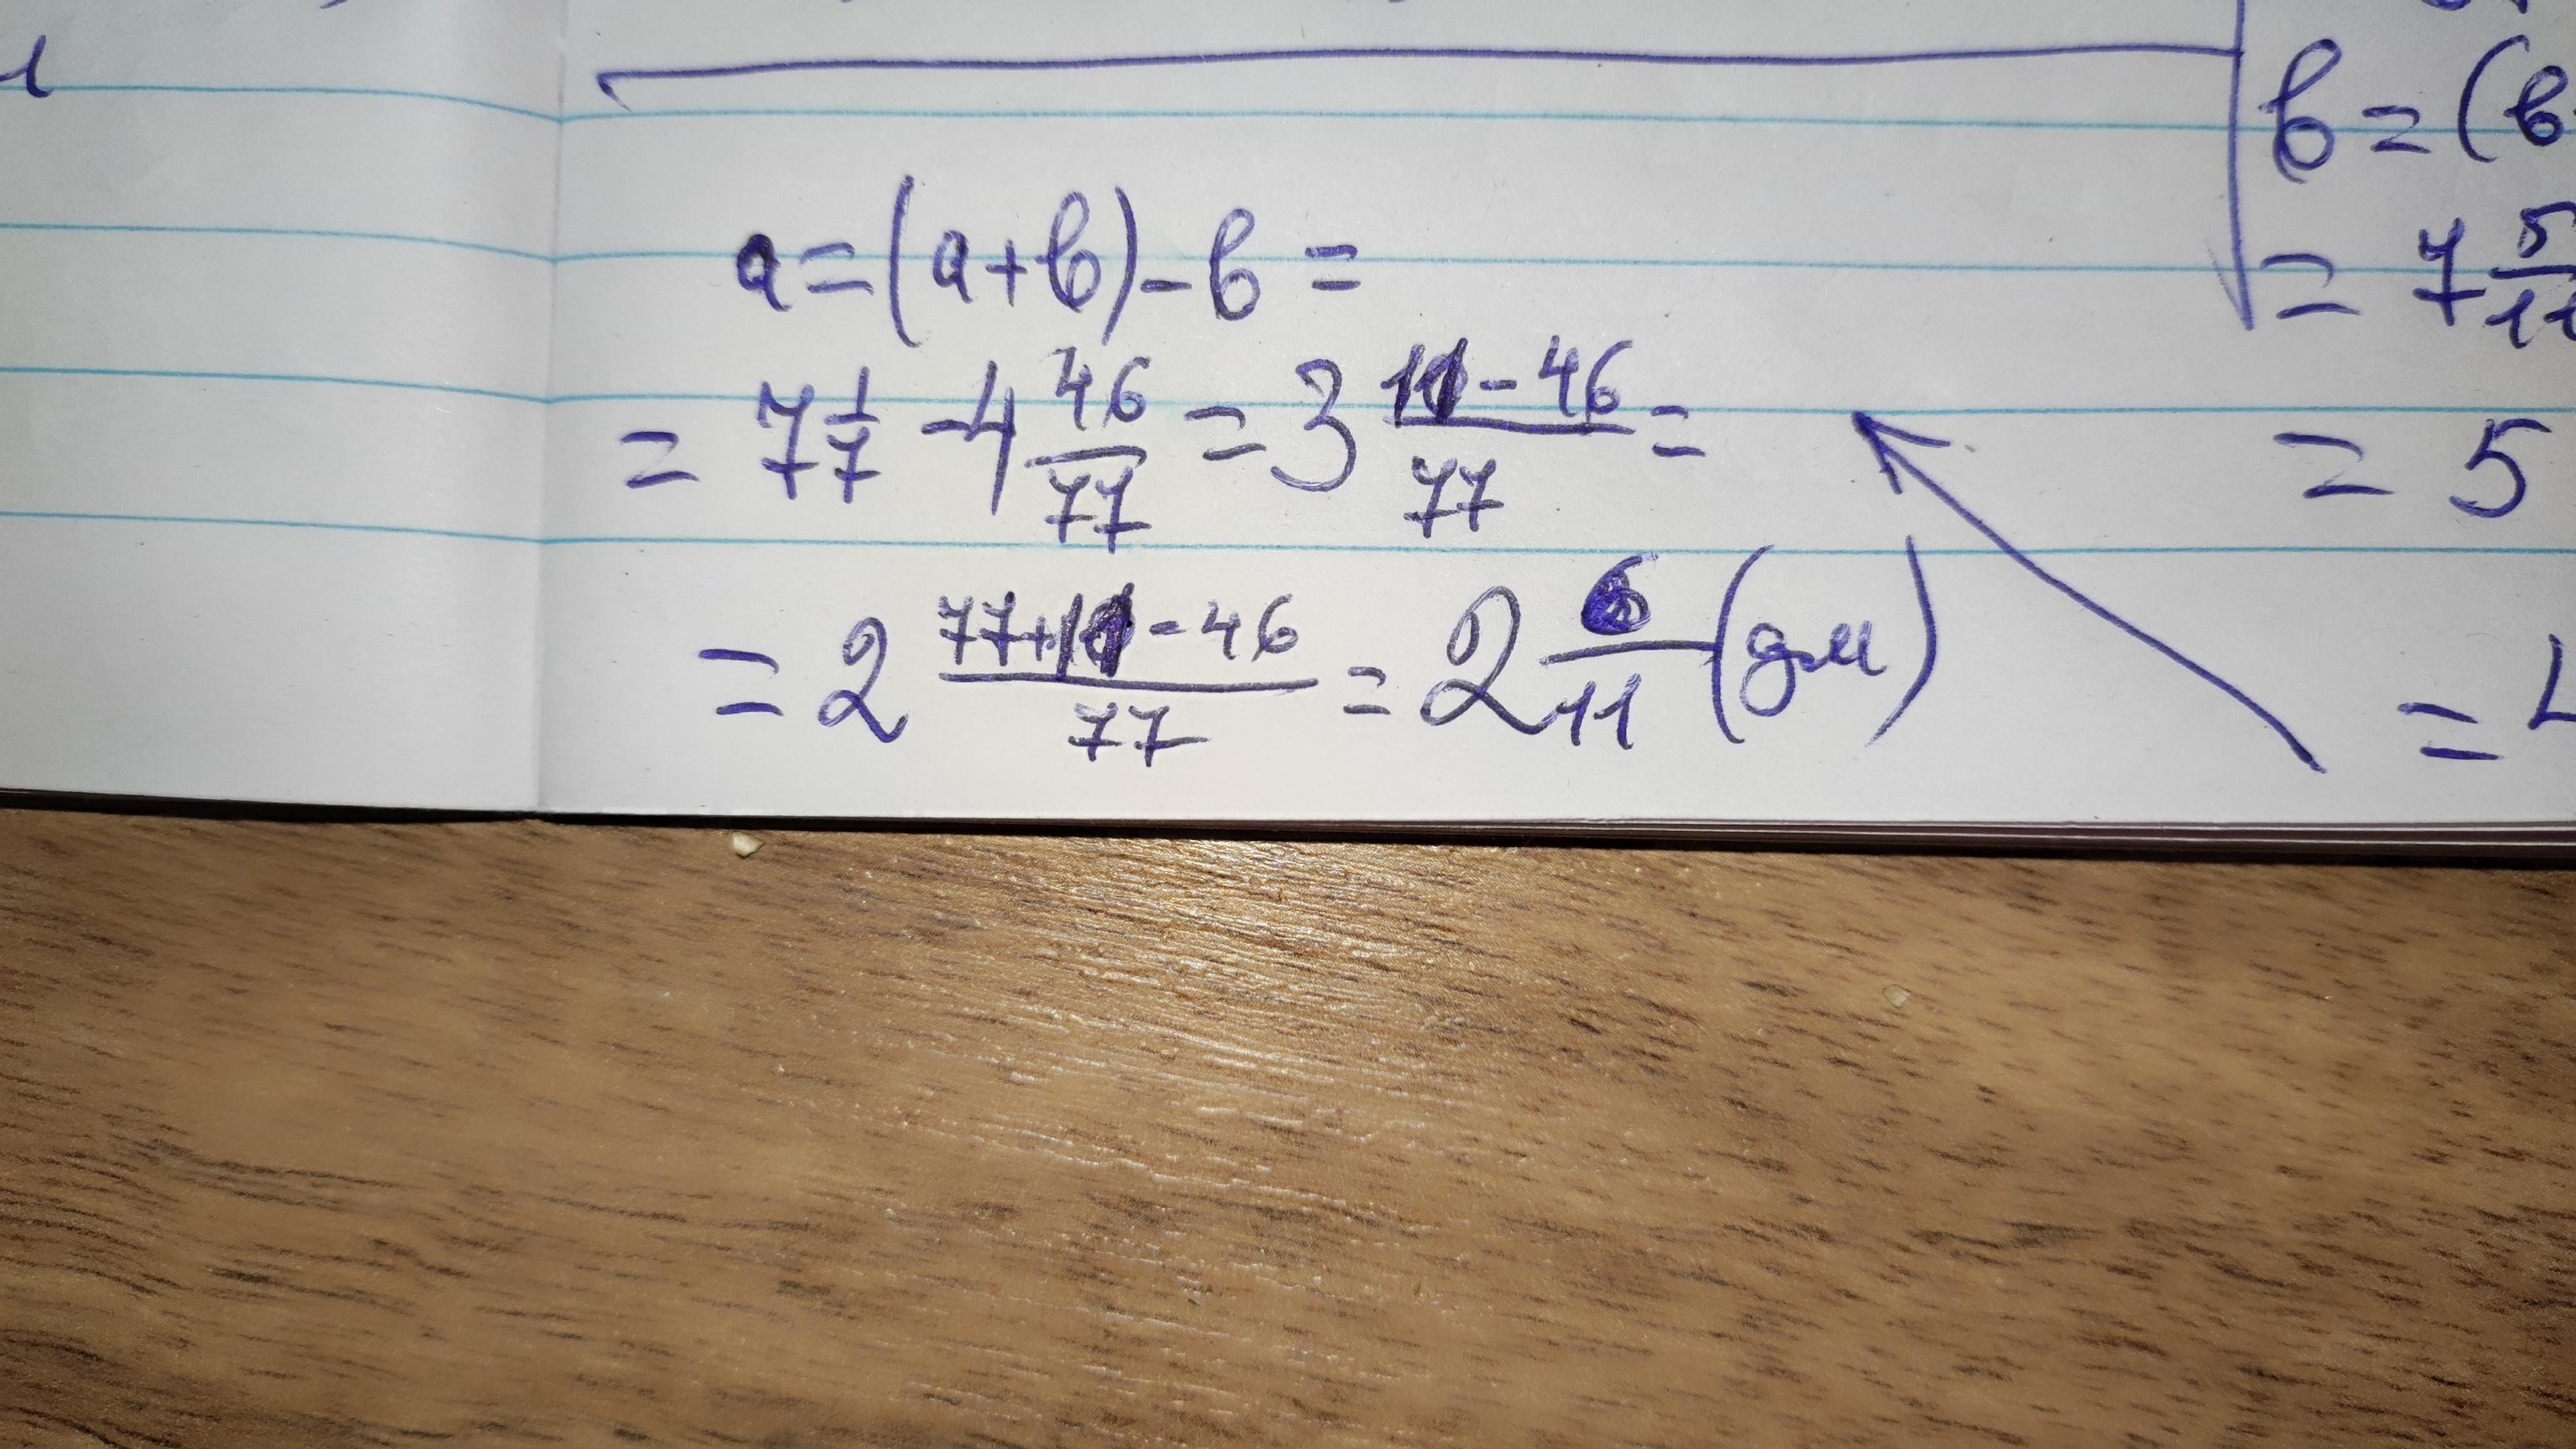 a = (a + b) - b =
= 7 1/7 - 4 46/77 = 3 (11 - 46)/77 =
= 2 (77 + 11 - 46)/77 = 2 6/11 (дм)
b = (b
= 7 5/11
= 5